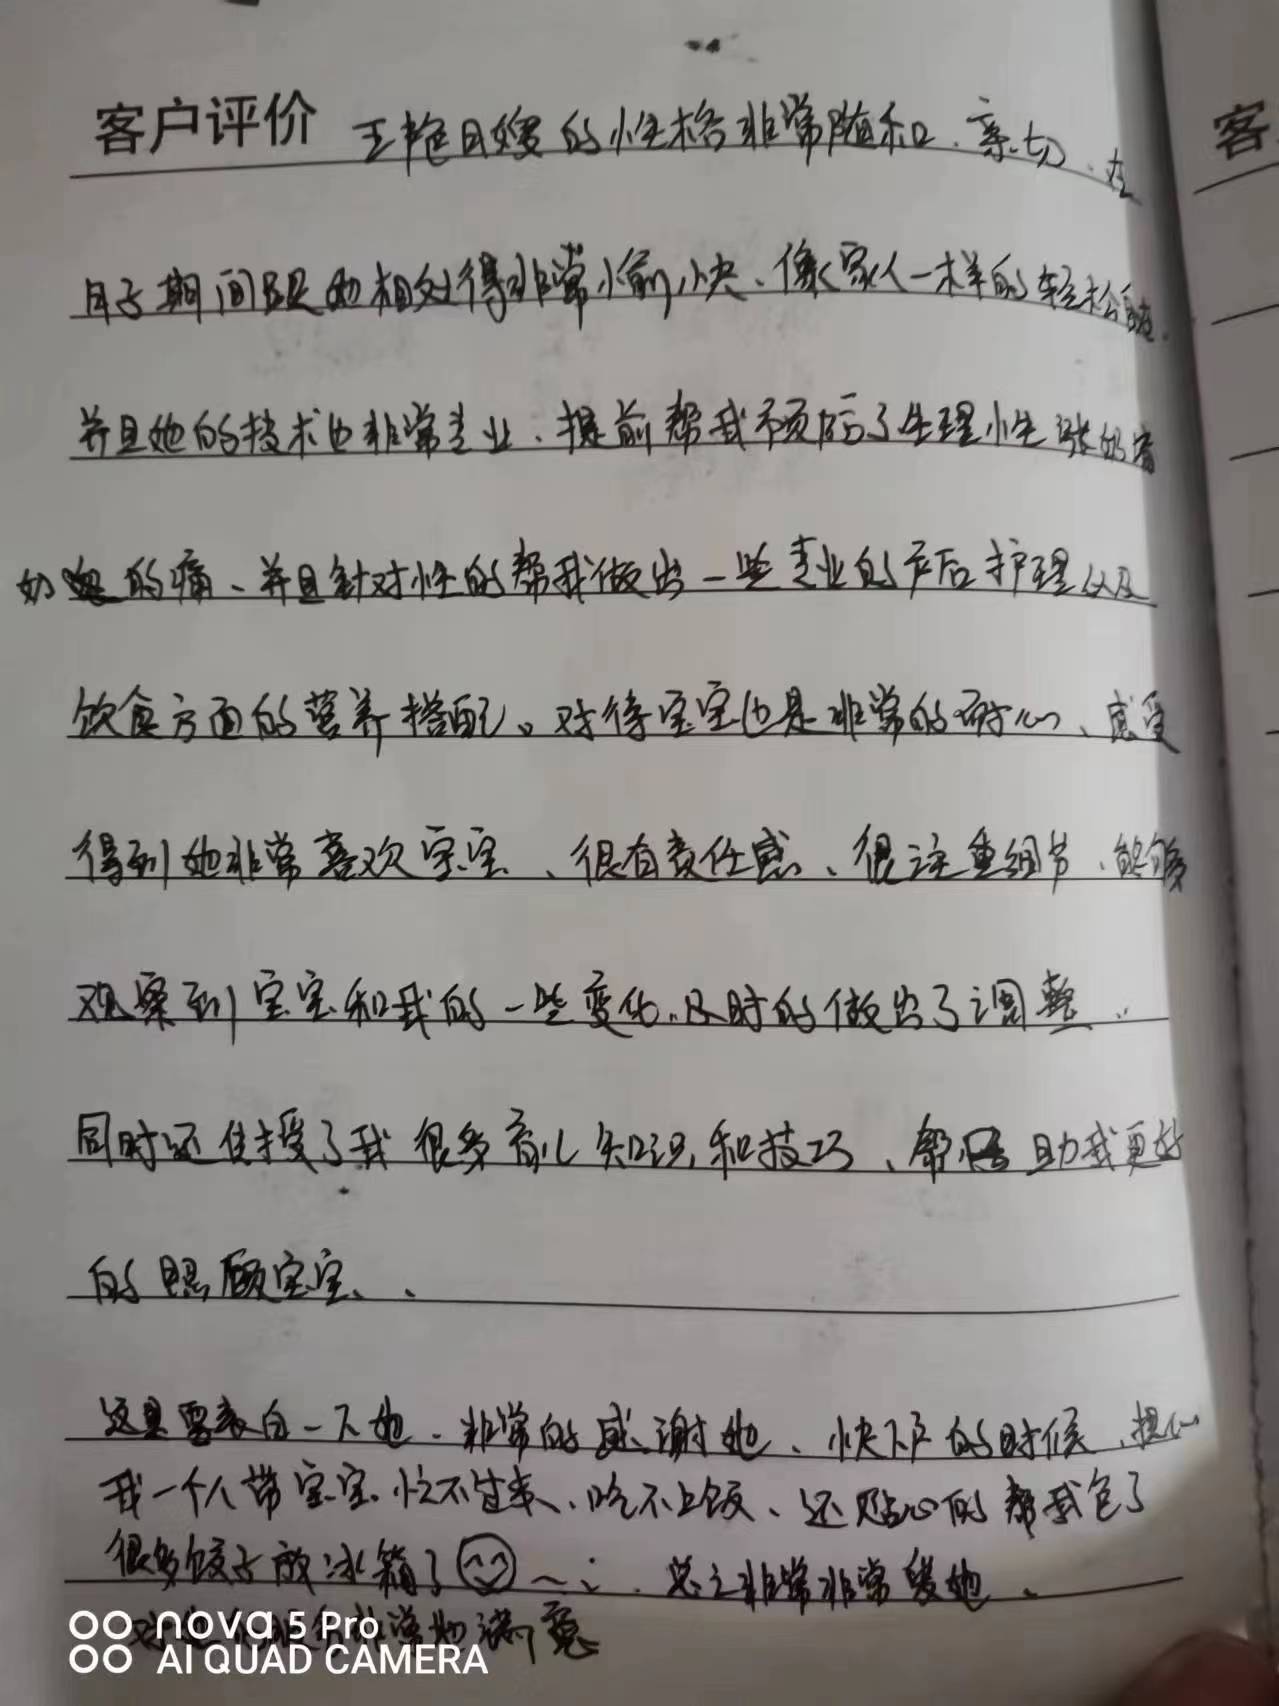 客户评价 王艳月嫂的性格非常随和、亲切、在
月子期间跟她相处得非常愉快、像家人一样的轻松自在.
并且她的技术也非常专业、提前帮我预防了生理性涨奶
的痛、并且针对性的帮我做出一些专业的产后护理以及
饮食方面的营养搭配。对待宝宝也是非常的耐心、感受
得到她非常喜欢宝宝、很有责任感、很注重细节、能够
观察到宝宝和我的一些变化.及时的做出了调整..
同时还传授了我很多育儿知识和技巧、帮助我更好
的照顾宝宝、.
这里要表白一下她.非常的感谢她、快下户的时候、担心
我一个人带宝宝忙不过来、吃不上饭、还贴心的帮我包了
很多饺子放冰箱了 总之非常非常爱她、
对她的服务非常地满意
客
nova 5 Pro
AI QUAD CAMERA